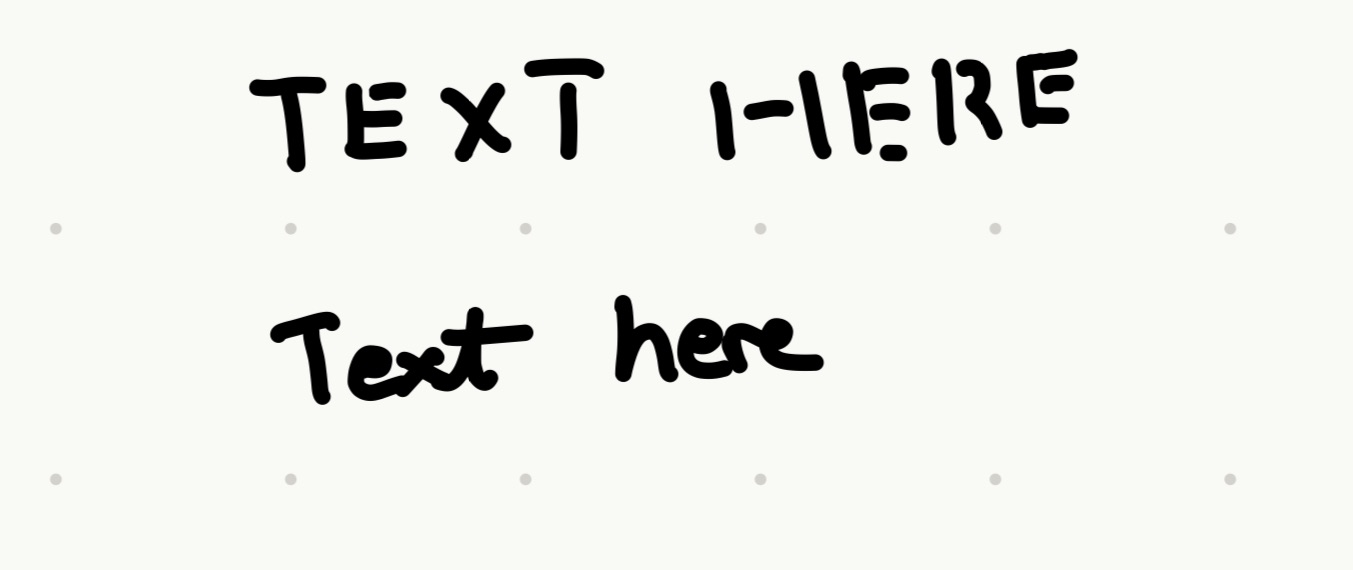 TEXT HERE
Text here